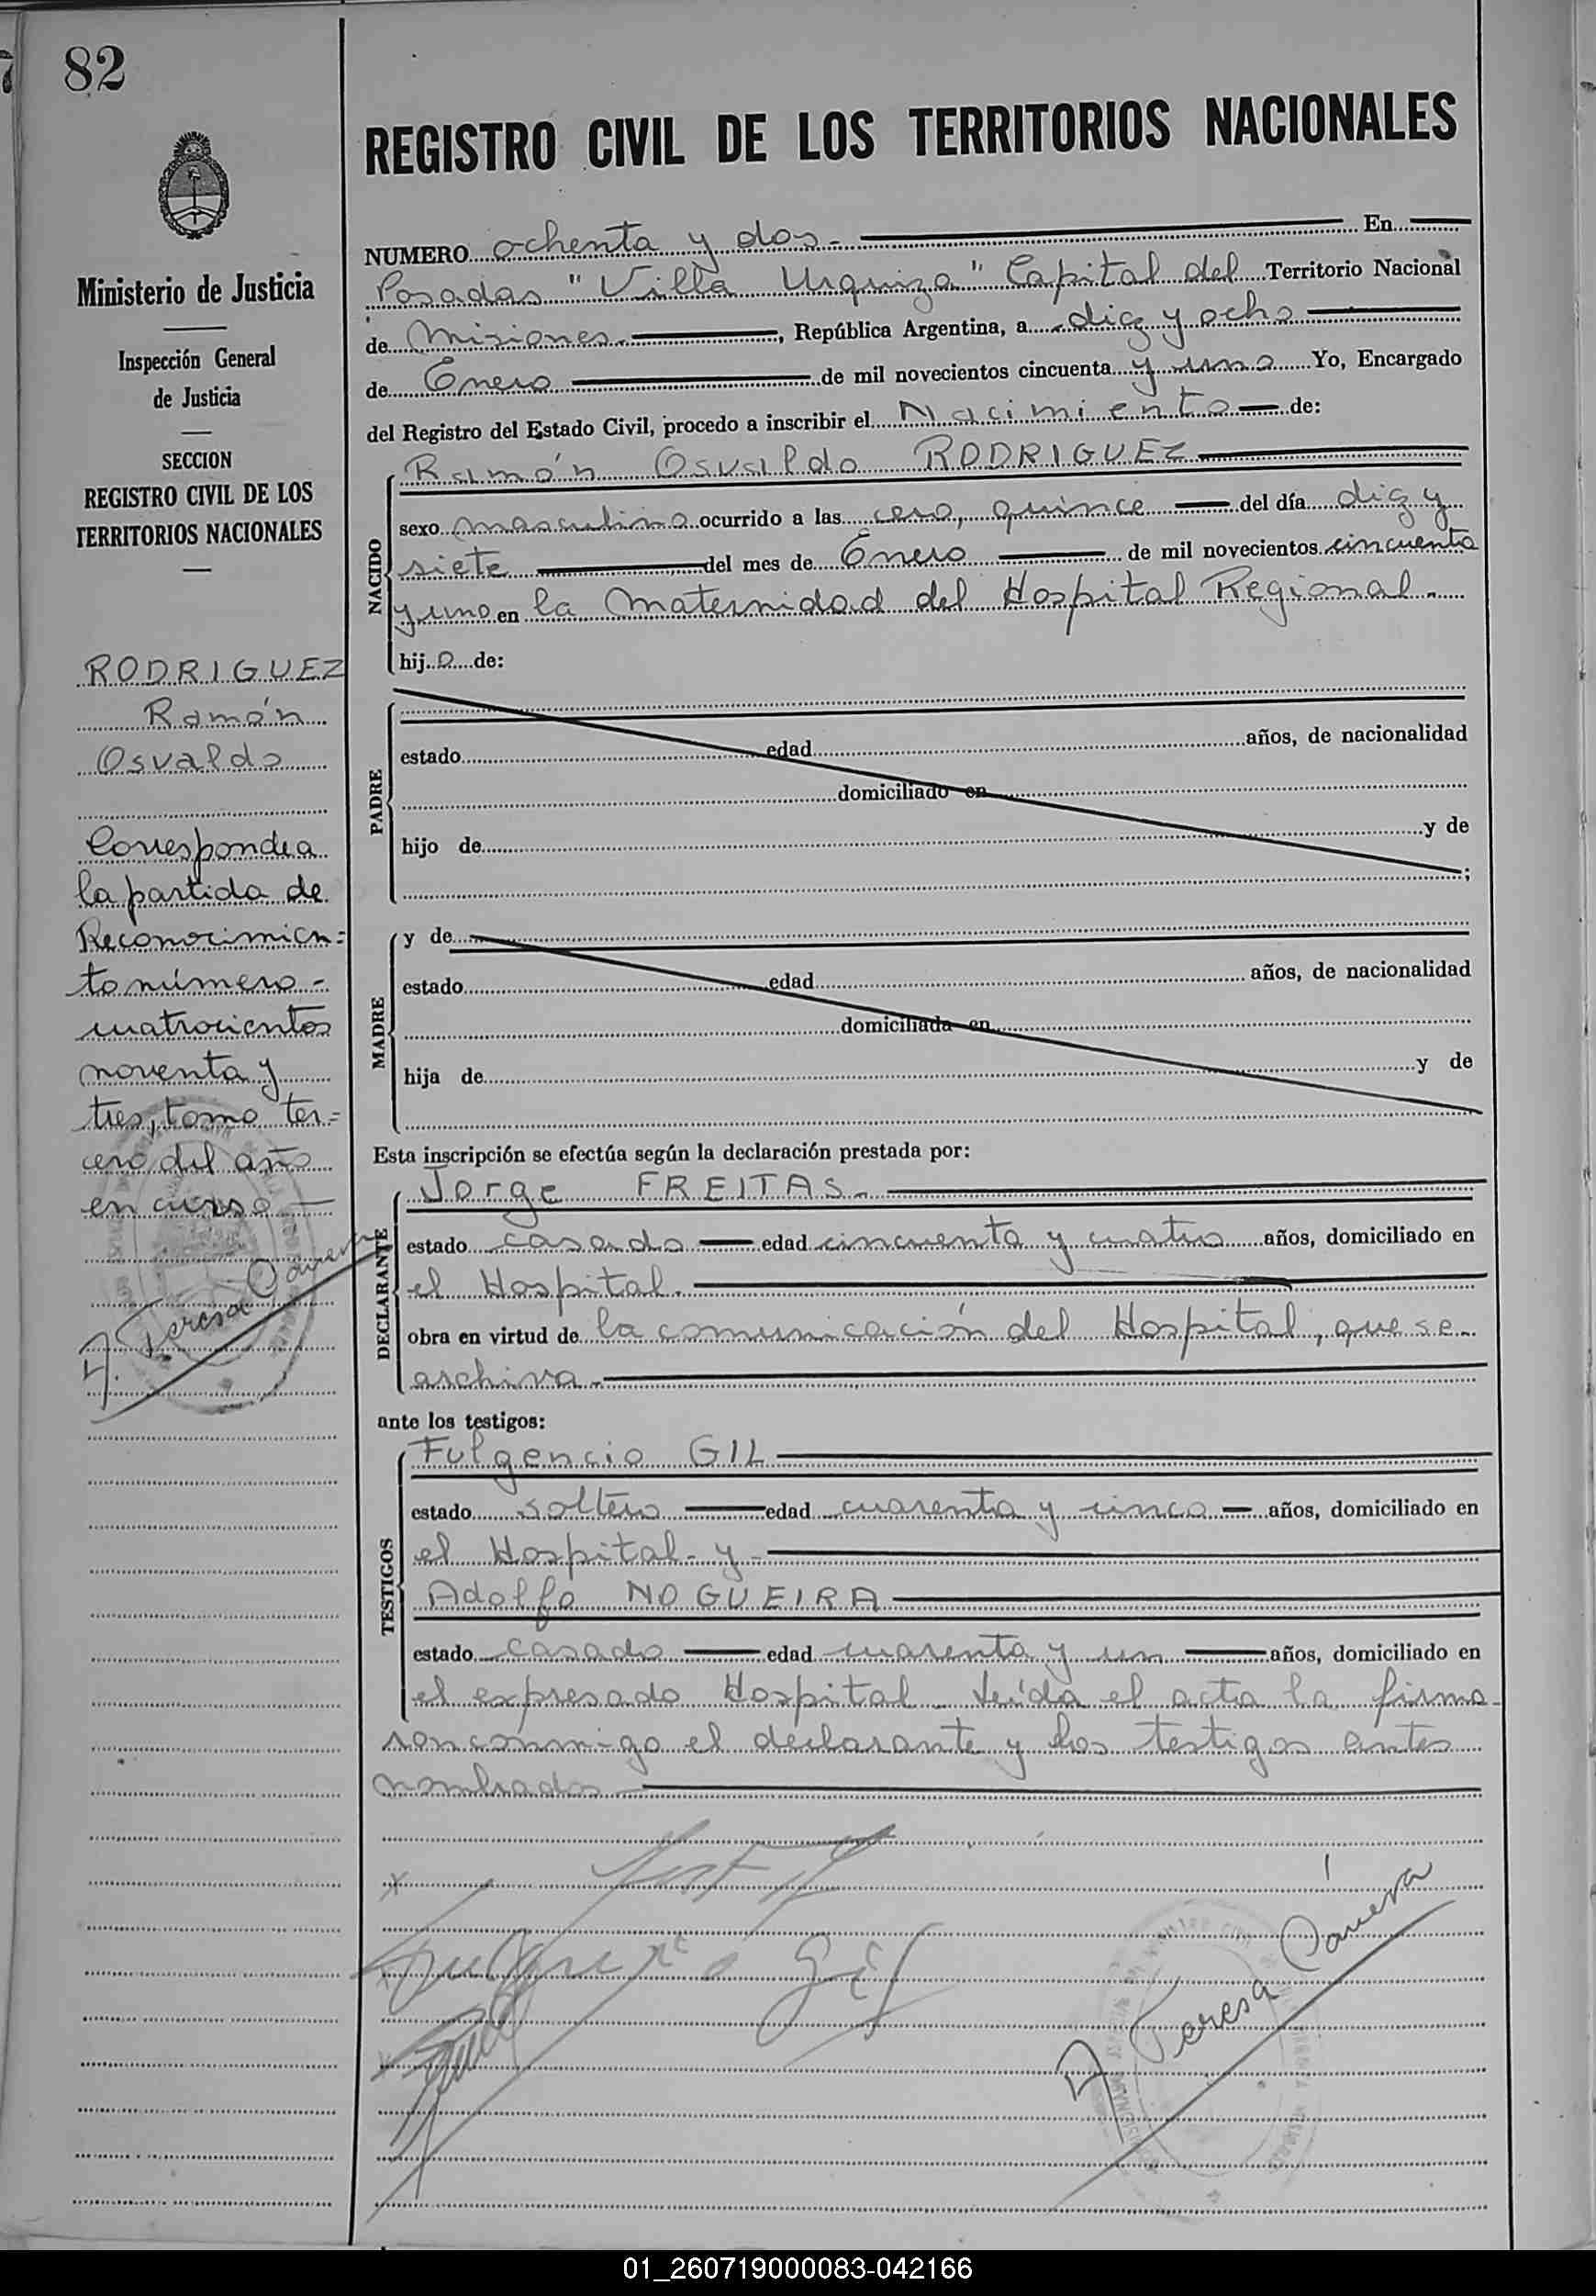 82
REGISTRO CIVIL DE LOS TERRITORIOS NACIONALES
Ministerio de Justicia
Inspección General
de Justicia
SECCION
REGISTRO CIVIL DE LOS
TERRITORIOS NACIONALES
RODRIGUEZ
Ramón
Osvaldo
Corresponde a
la partida de
Reconocimien=
to número -
cuatrocientos
noventa y
tres, tomo ter=
cero del año
en curso
A. Teresa
NUMERO ochenta y dos.- En
Posadas "Villa Urquiza" Capital del Territorio Nacional
de Misiones.- , República Argentina, a diez y ocho
de Enero de mil novecientos cincuenta y uno Yo, Encargado
del Registro del Estado Civil, procedo a inscribir el Nacimiento de:
NACIDO
Ramón Osvaldo RODRIGUEZ
sexo masculino ocurrido a las cero, quince del día diez y
siete del mes de Enero de mil novecientos cincuenta
y uno en la Maternidad del Hospital Regional.-
hijo de:
PADRE
estado edad años, de nacionalidad
domiciliado en
hijo de y de
;
MADRE
y de
estado edad años, de nacionalidad
domiciliada en
hija de y de
Esta inscripción se efectúa según la declaración prestada por:
DECLARANTE
Jorge FREITAS.-
estado casado edad cincuenta y cuatro años, domiciliado en
el Hospital.
obra en virtud de la comunicación del Hospital, que se
archiva.-
ante los testigos:
TESTIGOS
Fulgencio GIL
estado soltero edad cuarenta y cinco años, domiciliado en
el Hospital - y -
Adolfo NOGUEIRA
estado casado edad cuarenta y un años, domiciliado en
el expresado Hospital. Leída el acta la firma-
ron conmigo el declarante y los testigos antes
nombrados
Fulgencio Gil
A Teresa
01_260719000083-042166